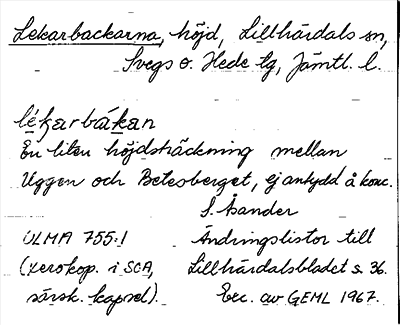 Lekarbackarna, höjd, Lillhärdals sn,
Svegs o. Hede tg, Jämtl. l.
lékarbákan
En liten höjdsträckning mellan
Uggen och Betesberget, ej antydd å konc.
S. Åsander
ULMA 755:1 Ändringslistor till
(xerokop. i SOA, Lillhärdalsbladet s. 36.
särsk. kapsel). Exc. av GEML 1967.